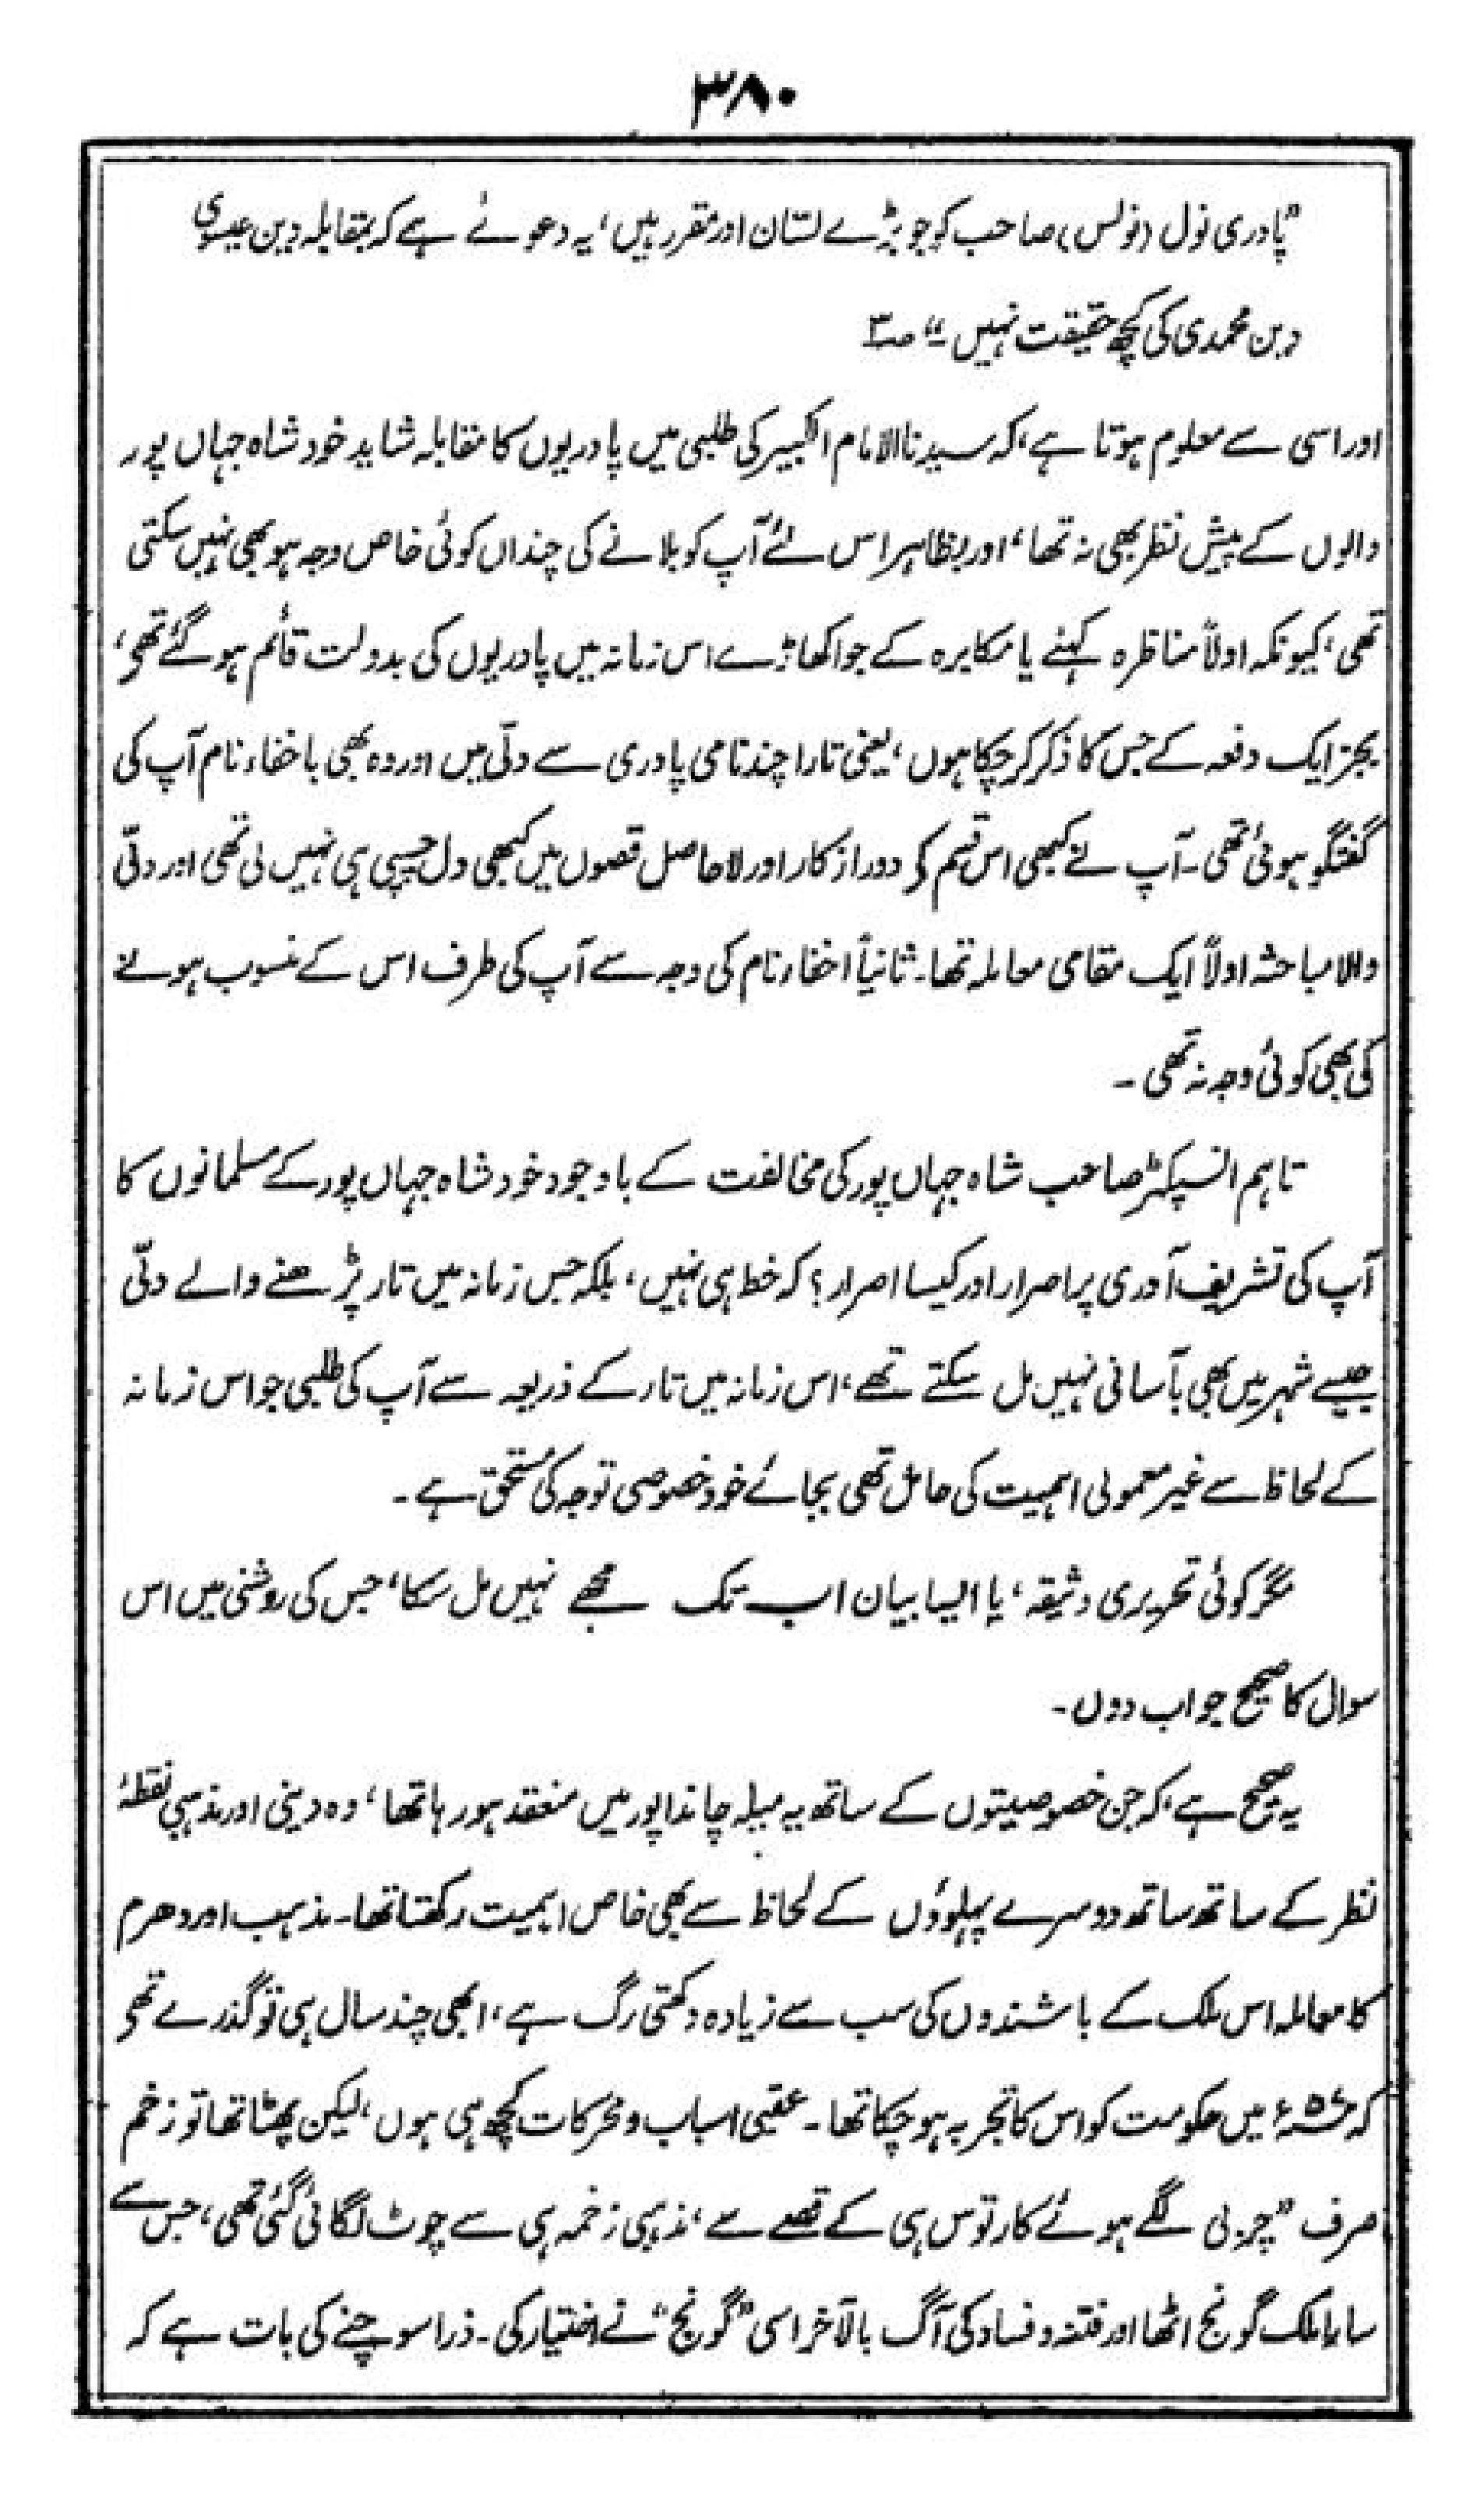 ۳۸۰
"پادری نول (نولس) صاحب کو جو بڑے لسّان اور مقرر ہیں، یہ دعوےٰ ہے کہ بمقابلہ دین عیسوی
دین محمدی کی کچھ حقیقت نہیں۔" صـ۳
اور اسی سے معلوم ہوتا ہے، کہ سیدنا الامام الکبیر کی طلبی میں پادریوں کا مقابلہ شاید خود شاہ جہاں پور
والوں کے پیش نظر بھی نہ تھا، اور بظاہر اس لئے آپ کو بلانے کی چنداں کوئی خاص وجہ ہو بھی نہیں سکتی
تھی، کیونکہ اولاً مناظرہ کہئے یا مکابرہ کے جو اکھاڑے اس زمانہ میں پادریوں کی بدولت قائم ہو گئے تھی،
بجز ایک دفعہ کے جس کا ذکر کر چکا ہوں، یعنی تارا چند نامی پادری سے دلّی میں اور وہ بھی باخفاء نام آپ کی
گفتگو ہوئی تھی۔ آپ نے کبھی اس قسم کر دور از کار اور لاحاصل قصوں میں کبھی دل چسپی ہی نہیں لی تھی اور دلّی
والا مباحثہ اولاً ایک مقامی معاملہ تھا۔ ثانیاً اخفاء نام کی وجہ سے آپ کی طرف اس کے منسوب ہونے
کی بھی کوئی وجہ نہ تھی۔
تاہم انسپکٹر صاحب شاہ جہاں پور کی مخالفت کے باوجود خود شاہ جہاں پور کے مسلمانوں کا
آپ کی تشریف آوری پر اصرار اور کیسا اصرار؟ کہ خط ہی نہیں، بلکہ جس زمانہ میں تار پڑھنے والے دلّی
جیسے شہر میں بھی بآسانی نہیں مل سکتے تھے، اس زمانہ میں تار کے ذریعہ سے آپ کی طلبی جو اس زمانہ
کے لحاظ سے غیر معمولی اہمیت کی حامل تھی بجائے خود خصوصی توجہ کی مستحق ہے۔
مگر کوئی تحریری وثیقہ، یا ایسا بیان اب تک مجھے نہیں مل سکا، جس کی روشنی میں اس
سوال کا صحیح جواب دوں۔
یہ صحیح ہے، کہ جن خصوصیتوں کے ساتھ یہ میلہ چاندا پور میں منعقد ہو رہا تھا، وہ دینی اور مذہبی نقطۂ
نظر کے ساتھ ساتھ دوسرے پہلوؤں کے لحاظ سے بھی خاص اہمیت رکھتا تھا۔ مذہب اور دھرم
کا معاملہ اس ملک کے باشندوں کی سب سے زیادہ دکھتی رگ ہے، ابھی چند سال ہی تو گذرے تھی
کہ ۵۷ء میں حکومت کو اس کا تجربہ ہو چکا تھا۔ عقبی اسباب و محرکات کچھ ہی ہوں، لیکن پھٹا تھا تو زخم
صرف "چربی لگے ہوئے کارتوس ہی کے قصے سے، مذہبی زخمہ ہی سے چوٹ لگائی گئی تھی، جس سے
سارا ملک گونج اٹھا اور فتنہ و فساد کی آگ بالآخر اسی "گونج" نے اختیار کی۔ ذرا سوچنے کی بات ہے کہ